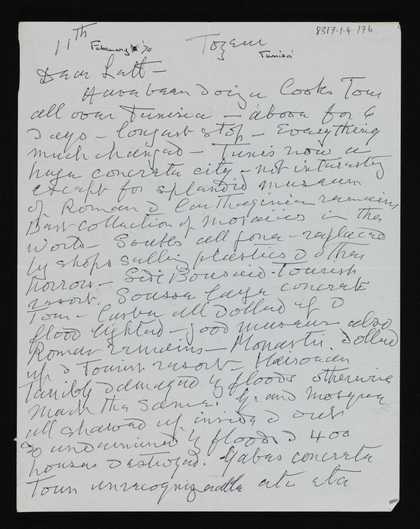 8317.1.4.176
11th February '70 Tozeur Tunisia
Dear Lett –
Have been doing a Cooks Tour
all over Tunisia – about for 6
days – longest stop – Everything
much changed – Tunis now a
huge concrete city – not interesting
except for splendid museum
of Roman & Carthaginian remains
Best collection of mosaics in the
World – Souks all gone – replaced
by shops selling plastics & other
horrors – Sidi Bou Said – Tourist
resort. Sousse large concrete
Town – Casba all dolled up &
flood lighted – good museum also
Roman remains – Monastir. Dolled
up & Tourist resort – Kairouan
Terribly damaged by floods otherwise
much the same. Grand mosque
all shored up inside & out
so undermined by floods & 400
houses destroyed. Gabes concrete
Town unrecognizable etc etc